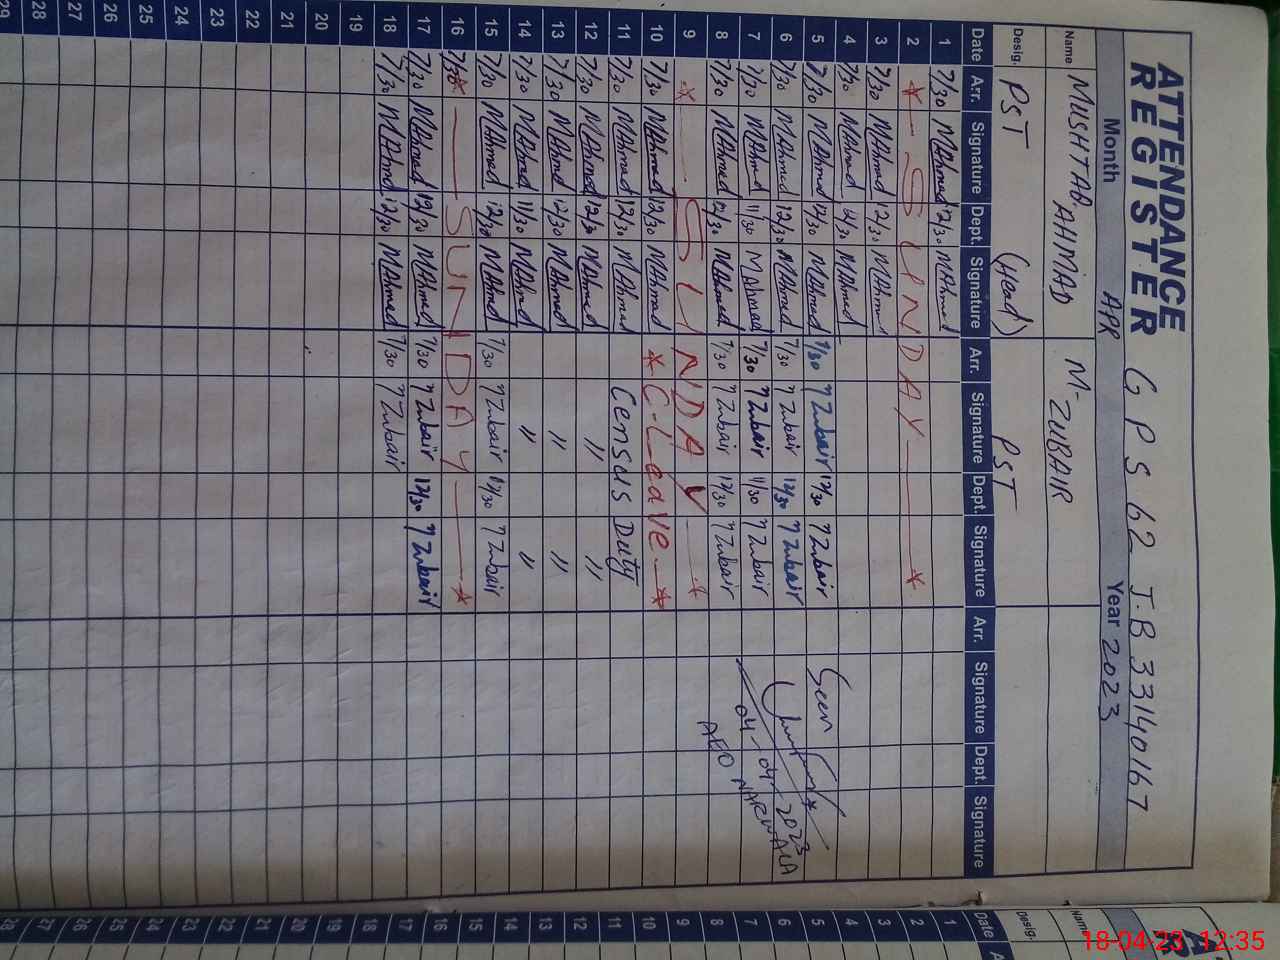 ATTENDANCE REGISTER G P S 62 J.B 33140167
Month APR Year 2023
Name MUSHTAB. AHMAD M- ZUBAIR
Desig. PST (Head) PST
Date Arr. Signature Dept. Signature Arr. Signature Dept. Signature Arr. Signature Dept. Signature
1 7/30 MAhmad 12/30 MAhmad
2 * S U N D A Y *
3 7/30 MAhmad 12/30 MAhmad
4 7/30 MAhmad 12/30 MAhmad
5 7/30 MAhmad 12/30 MAhmad 7/30 M Zubair 12/30 M Zubair Seen
6 7/30 MAhmad 12/30 MAhmad 7/30 M Zubair 12/30 M Zubair
7 7/30 MAhmad 11/30 MAhmad 7/30 M Zubair 11/30 M Zubair 04-04-2023
8 7/30 MAhmad 12/30 MAhmad 7/30 M Zubair 12/30 M Zubair AEO NARWALA
9 * S U N D A Y *
10 7/30 MAhmad 12/30 MAhmad * C-Leave *
11 7/30 MAhmad 12/30 MAhmad Census Duty
12 7/30 MAhmad 12/30 MAhmad " "
13 7/30 MAhmad 12/30 MAhmad " "
14 7/30 MAhmad 11/30 MAhmad " "
15 7/30 MAhmad 12/30 MAhmad 7/30 M Zubair 12/30 M Zubair
16 * S U N D A Y *
17 7/30 MAhmad 12/30 MAhmad 7/30 M Zubair 12/30 M Zubair
18 7/30 MAhmad 12/30 MAhmad 7/30 M Zubair
19
20
21
22
23
24
25
26
27
28
29
Name
Desig.
Date
1
2
3
4
5
6
7
8
9
10
11
12
13
14
15
16
17
18
19
20
21
22
23
24
25
26
27
28
18-04-23 12:35